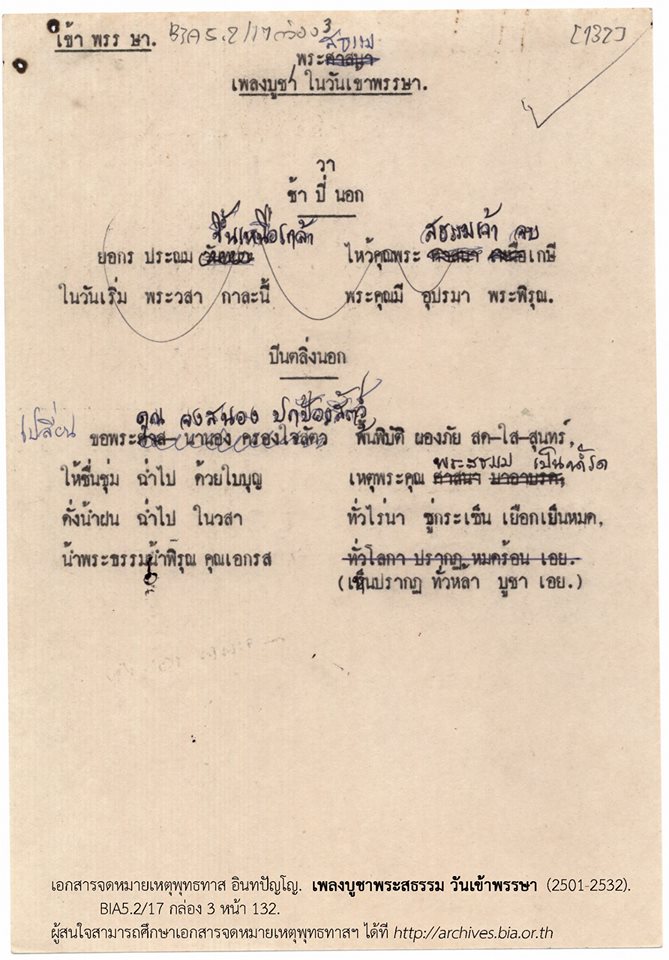 เข้า พรร ษา. BIA5.2/17 กล่อง 3 [132]
สธรรม
พระศาสนา
เพลงบูชา ในวันเขาพรรษา.
วา
ช้า ปี่ นอก
ขึ้นเหนือเกล้า สธรรมเจ้า จบ
ยอกร ประณม ไหว้คุณพระ ศาสนา เหนือเกษี
ในวันเริ่ม พระวสา กาละนี้ พระคุณมี อุปรมา พระพิรุณ.
ปีนตลิ่งนอก
คุณ จงสนอง ปกป้องสัตว์
เปลี่ยน ขอพระศาส นานอง ครองใจสัตว พ้นพิบติ ผองภัย สด-ใส-สุนทร์,
พระธรรม เป็นน้ำรด
ให้ชื่นชุ่ม ฉ่ำไป ด้วยใบบุญ เหตุพระคุณ ศาสนา มาอาบรด,
ดั่งน้ำฝน ฉ่ำไป ในวสา ทั่วไร่นา ชู่กระเซ็น เยือกเย็นหมด,
น้ำพระธรรมน้ำพิรุณ คุณเอกรส ทั่วโลกา ปรากฏ หมดร้อน เอย.
(เห็นปรากฏ ทั่วหล้า บูชา เอย.)
เอกสารจดหมายเหตุพุทธทาส อินทปัญโญ. เพลงบูชาพระสธรรม วันเข้าพรรษา (2501-2532).
BIA5.2/17 กล่อง 3 หน้า 132.
ผู้สนใจสามารถศึกษาเอกสารจดหมายเหตุพุทธทาสฯ ได้ที่ http://archives.bia.or.th